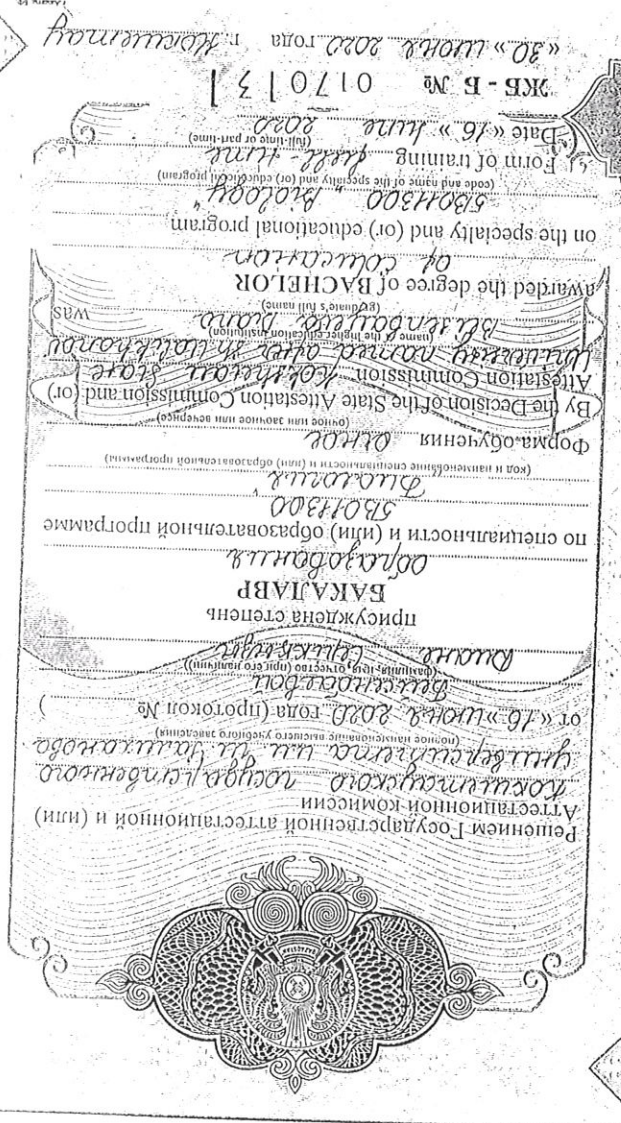 Решением Государственной аттестационной и (или)
Аттестационной комиссии
Кокшетауского государственного
университета им. Ш. Уалиханова
(полное наименование высшего учебного заведения)
от « 16 » июня 2020 года (протокол № )
Бейсенбаевой
(фамилия, имя, отчество (при его наличии))
Диане
присуждена степень
БАКАЛАВР
образования
по специальности и (или) образовательной программе
5B011300
Биология
(код и наименование специальности и (или) образовательной программы)
Форма обучения очное
(очное или заочное или вечернее)
By the Decision of the State Attestation Commission and (or)
Attestation Commission Kokshetau State
University named after Sh. Ualikhanov
(name of the higher education institution)
Diana was
(graduate's full name)
awarded the degree of BACHELOR
of education
on the specialty and (or) educational program
5B011300 "Biology"
(code and name of the specialty and (or) educational program)
Form of training full-time
(full-time or part-time)
Date « 16 » June 2020
ЖБ - Б № 0170131
« 30 » июня 2020 года г. Кокшетау